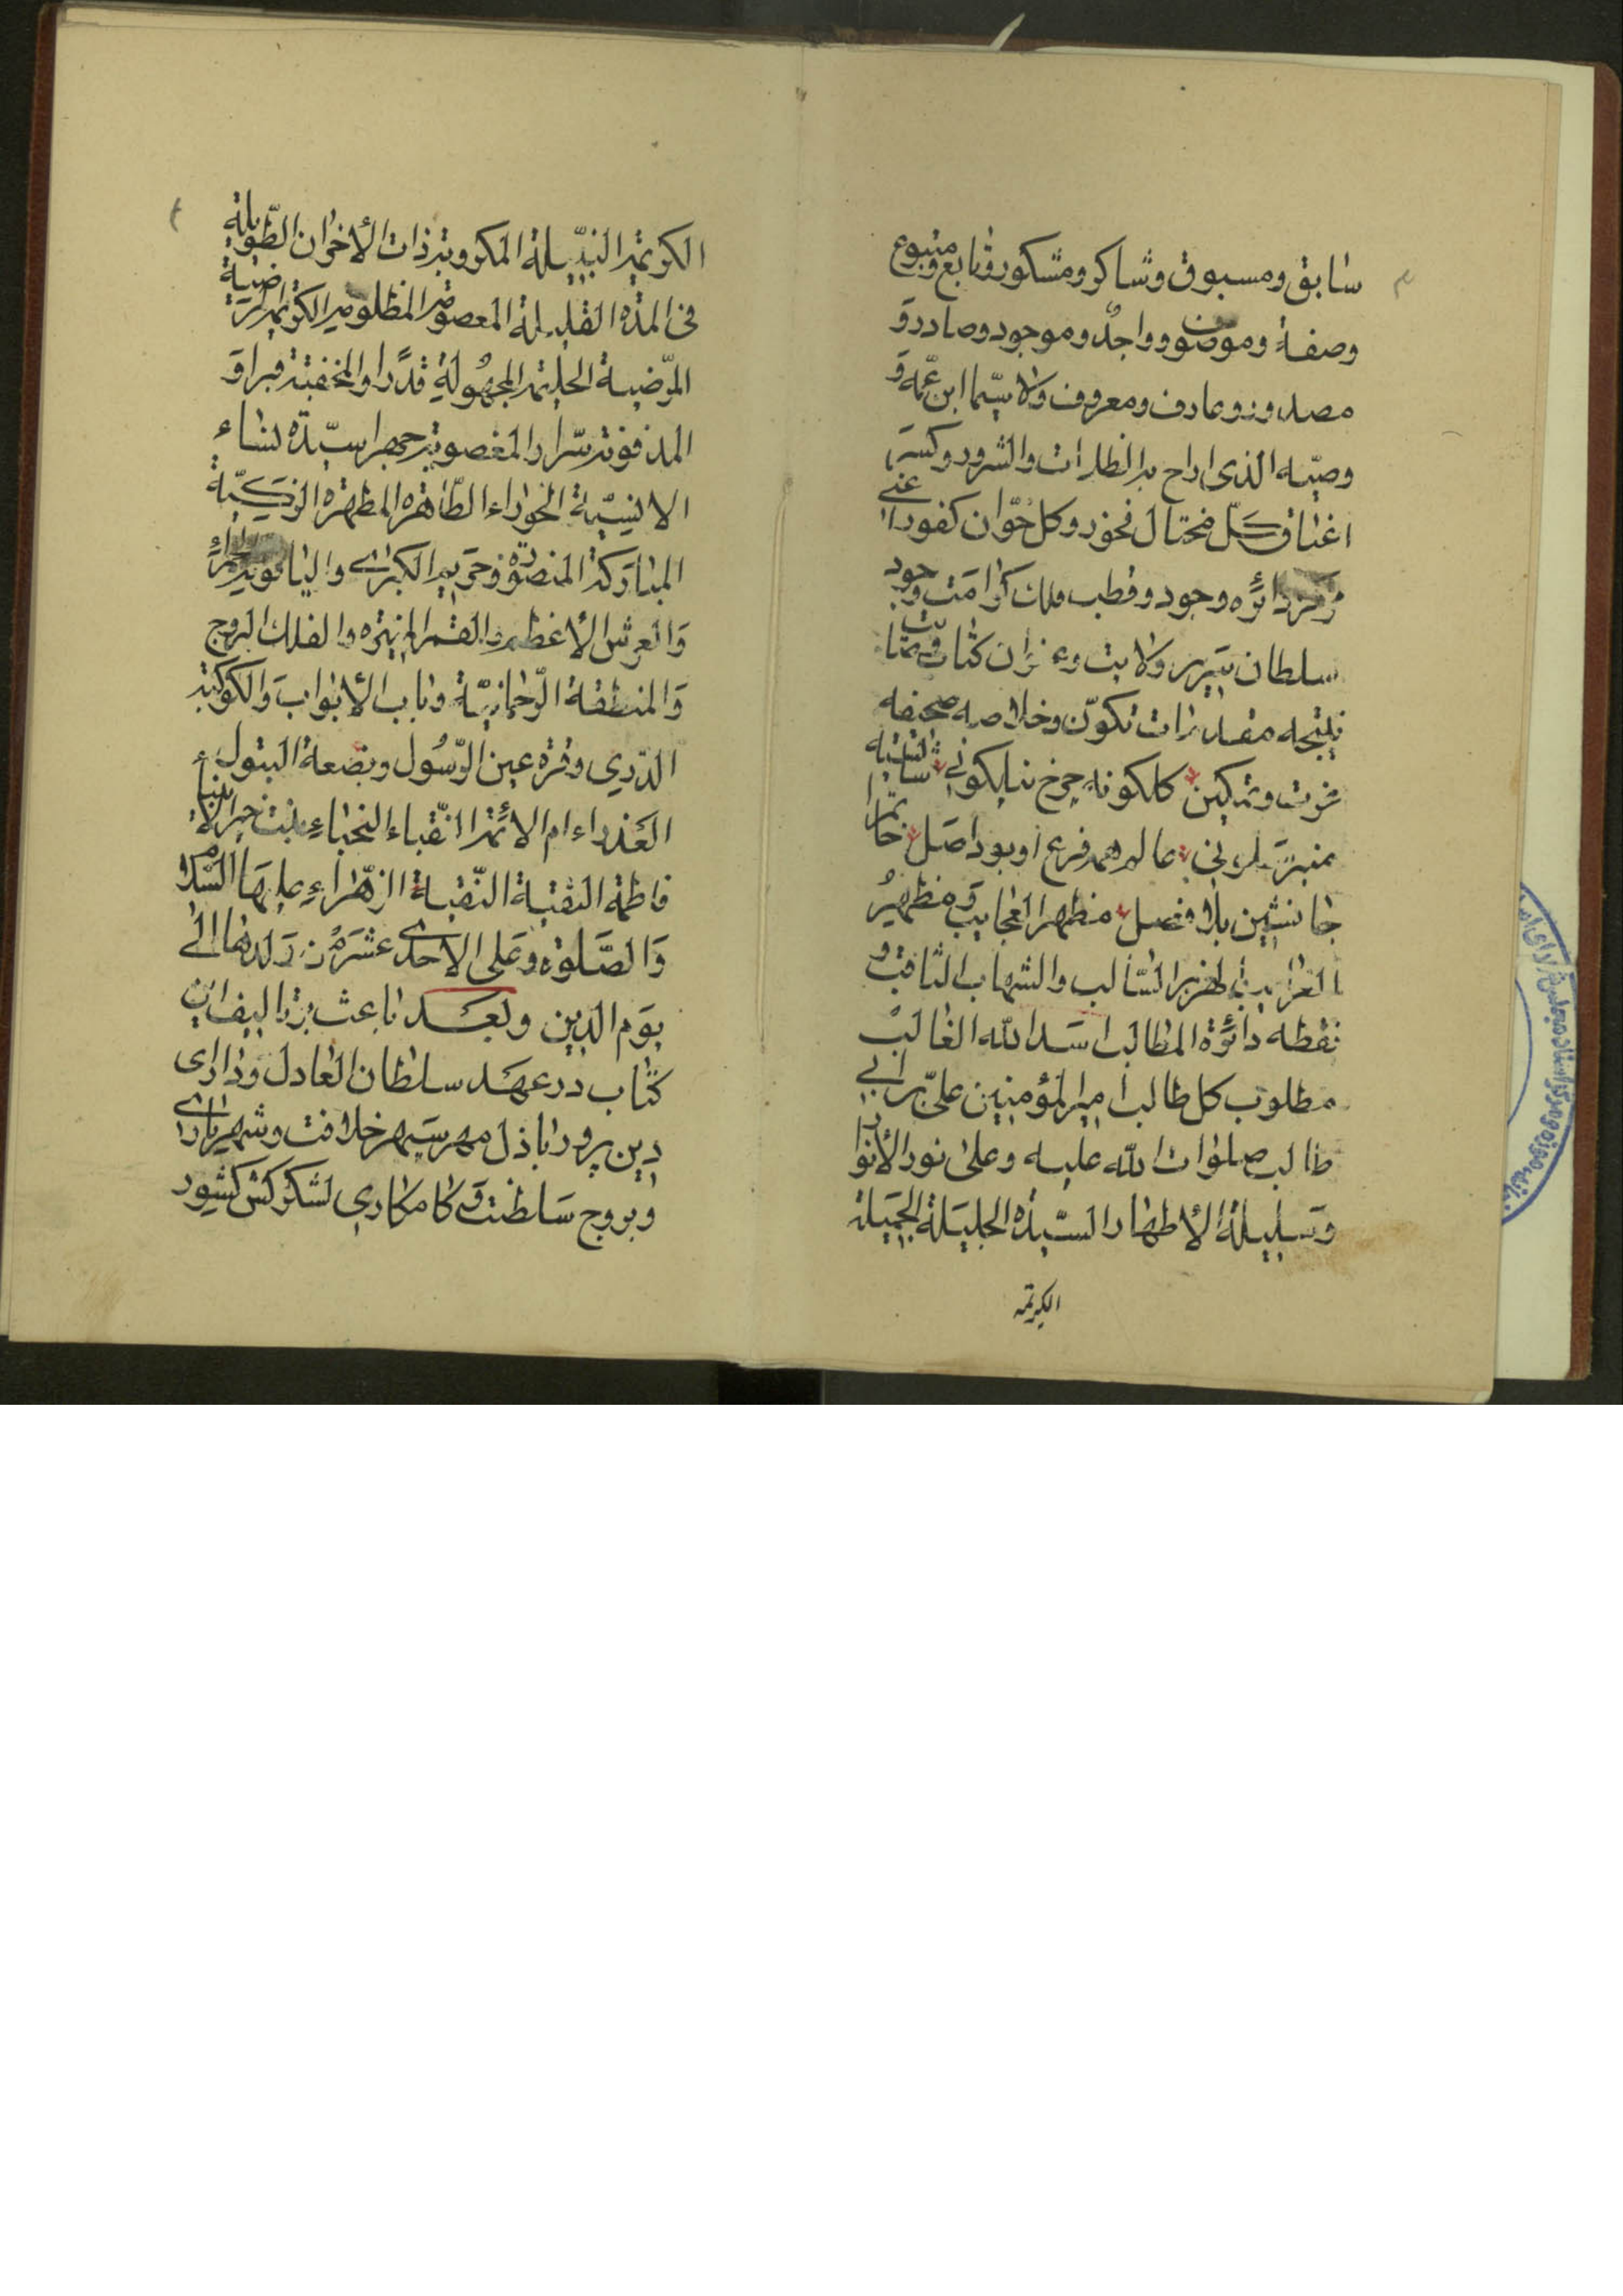 سابق و مسبوق و شاکر و مشکور و تابع و متبوع
وصفة و موصوف و واجدٌ و موجود و صادر و
مصدور و عارف و معروف ولا سیّما ابن عمّه و
وصیّه الذی اراح به الطارات والشرور وکسر
اعناق کلّ مختال فخور و کل خوّان کفور اعنی
مرکز دائره وجود و قطب فلک کرامت و جود
سلطان سریر ولایت و
نتیجه مقدرات تکوّن و خلاصه صحیفه
عزت و تمکین کلکونه چرخ نیلکونی شایسته
منبر سلونی عالم همه فرع او بود اصل خاتم را
جانشین بلا فصل مظهر العجایب و مظهر
الغرایب الهزبر السّالب والشهاب الثاقب و
نقطه دائرة المطالب اسد الله الغالب
مطلوب کل طالب امیرالمؤمنین علیّ بن ابی
طالب صلوات الله علیه وعلی نور الأنوار
وسلیلة الأطهار السیّدة الجلیلة الجمیلة
الکریمة
الکریمة النبیلة المکروبة ذات الأحزان الطّویلة
فی المدة القلیلة المعصومة المظلومة الکریمة الرّاضیة
المرّضیة الحلیمة المجهولة قدرًا والمخفیة قبرا و
المدفونة سّرا والمغصوبة جهرا سیّدة نساء
الانسیّة الحوراء الطّاهرة المطهرة الزکیّة
المبارکة المنصورة و مریم الکبری والیاقوتة الحمراء
والعرش الأعظم والقمر المنیره والفلک البروج
والمنطقة الرّحمانیّة و باب الأبواب والکوکبة
الدّری و قرة عین الرّسول و بضعة البتول
العذراء ام الائمة النّقباء النجباء بنت خیر الأنبیاء
فاطمة التقیة النّقیة الزهّراء علیها السّلام
والصّلوة و علی الاحدی عشر من ولدها الی
یوم الدین و بعد باعث بر تالیف این
کتاب در عهد سلطان العادل و دارای
دین پرور باذل مهر سپهر خلافت و شهریاری
و بروج سلطنت و کامکاری لشکرکش کشور